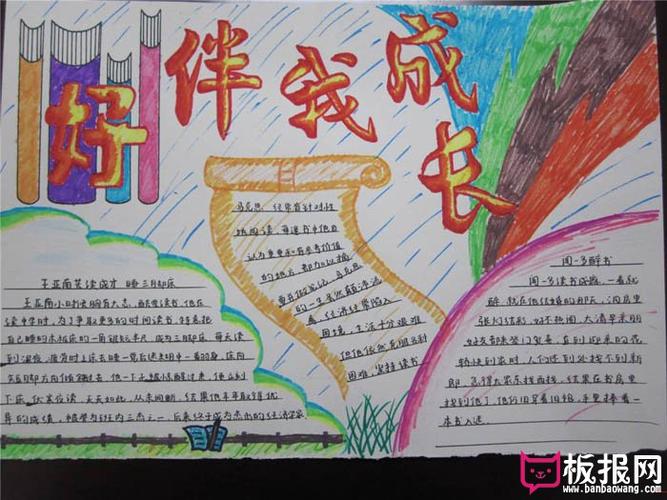 好
伴我成长
王亚南苦读成才 睡三脚床
王亚南小时候胸有大志,酷爱读书,他在
读中学时,为了争取更多的时间读书,特意把
自己睡的木板床的一条腿锯短半尺,成为三脚床。每天读
到深夜,疲劳时上床去睡一觉后迷糊中一翻身,床向
短脚方向倾斜过去,他一下子被惊醒过来,便立刻
下床,伏案夜读。天天如此,从未间断。结果他年年都取得优
异的成绩,被誉为班内三杰之一,后来终于成为杰出的经济学家
马克思 经常有针对性
地阅读,每逢书中他自
认为重要和有参考价值
的地方,都加以摘
一生虽然颠沛流
离,经济经常陷入
困境,生活十分艰难
但他依然克服各种
困难,坚持读书
闻一多醉书
闻一多读书成瘾,一看就
醉,就在他结婚的那天,洞房里
张灯结彩,好不热闹。大清早亲朋
好友都来登门贺喜,直到迎亲的花
轿快到家时,人们还到处找不到新
郎。急得大家东找西找,结果在书房里
找到了他。他仍旧穿着旧袍,手里捧着一
本书入迷。
板报网
www.banbaowang.com